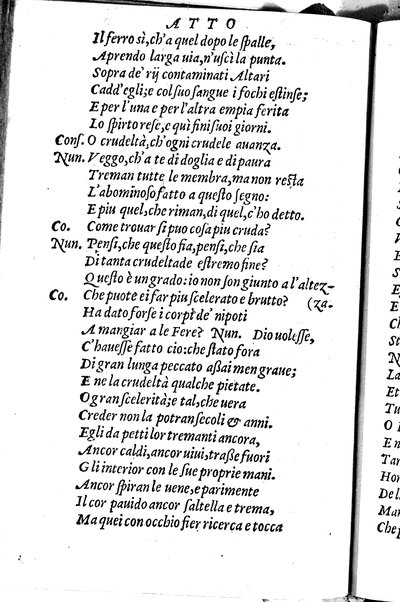 ATTO
Il ferro sì, ch'a quel dopo le ſpalle,
Aprendo larga uia, n'uſcì la punta.
Sopra de' rij contaminati Altari
Cadd'egli; e col ſuo ſangue i fochi eſtinſe;
E per l'una e per l'altra empia ferita
Lo ſpirto reſe, e quì finì ſuoi giorni.
Conſ. O crudeltà, ch'ogni crudele auanza.
Nun. Veggo, ch'a te di doglia e di paura
Treman tutte le membra, ma non reſta
L'abominoſo fatto a queſto ſegno:
E piu quel, che riman, di quel, c'ho detto.
Co. Come trouar ſi puo coſa piu cruda?
Nun. Penſi, che queſto ſia, penſi, che ſia
Di tanta crudeltade eſtremo fine?
Queſto è un grado: io non ſon giunto a l'altez-
Co. Che puote ei far piu ſcelerato e brutto? (za.
Ha dato forſe i corpi de' nipoti
A mangiar a le Fere? Nun. Dio uoleſſe,
C'haueſſe fatto cio: che ſtato fora
Di gran lunga peccato aſſai men graue;
E ne la crudeltà qualche pietate.
O gran ſcelerità; e tal, che uera
Creder non la potran ſecoli & anni.
Egli da petti lor tremanti ancora,
Ancor caldi, ancor uiui, traße fuori
Gli interior con le ſue proprie mani.
Ancor ſpiran le uene, e parimente
Il cor pauido ancor ſaltella e trema,
Ma quei con occhio fier ricerca e tocca